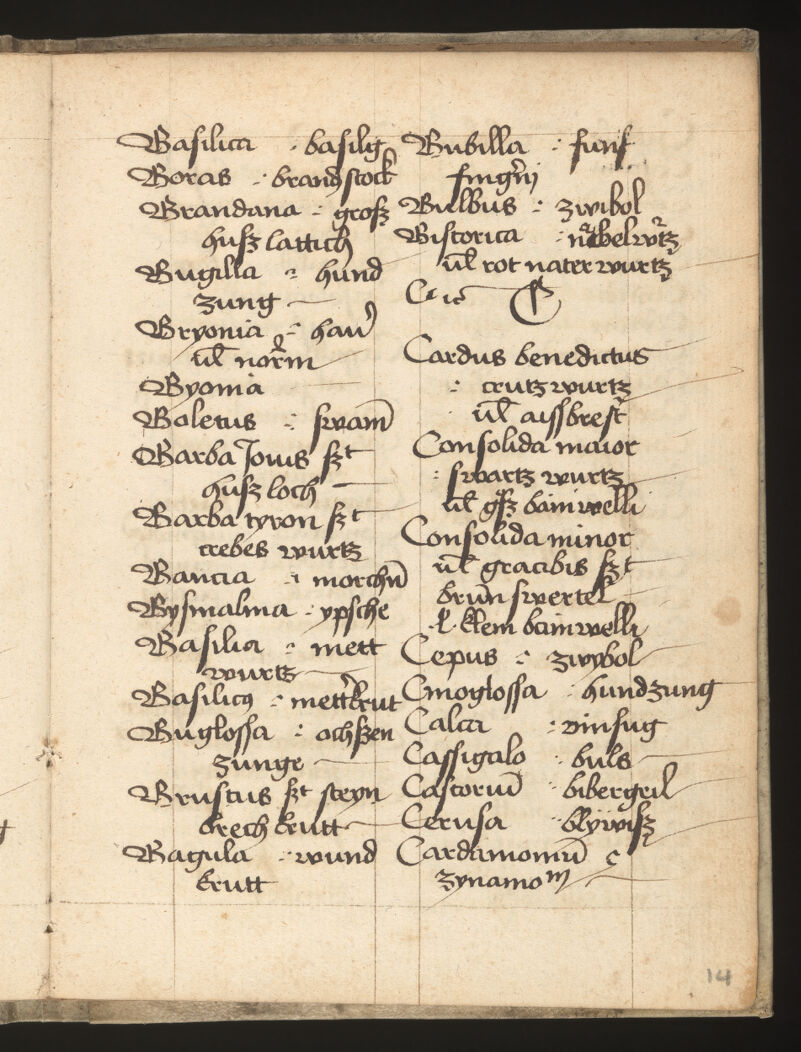 Basilica · basilg
Boras · brandstock
Brandana · grosz
husz lattich
Bugilla · hund
zung
Bryonia · hau
ul norm
Byonia
Boletus · swam̄
Barba Jouis szt
husz loch
Barba tyron szt
crebes wurtz
Bancia · morchn̄
Bysmalma · ypsche
Basilia · mett
wurtz
Basilicꝰ · metterkrut
Buglossa · ochszen
zunge
Bruscus szt steyn
brech krutt
Bagula · wund
krutt
Bubilla · funf
fingrij
Bulbus · zwibol
Bistorica · natbelwrtz
ul rot nater wurtz
C
Cardus benedictus
crutz wurtz
ul aissbrest
Consolida maior
swartz wurtz
ul gsz bainwelli
Consolida minor
ul gracibis szt
brun swertel
l klein bainwelli
Cepus · zwybol
Cinoglossa · hundzung
Calca · vinsug
Cassigalo · buls
Castoriu̅ · bibergeil
Cerusa · blywisz
Cardamomu̅ c
zynamom
14